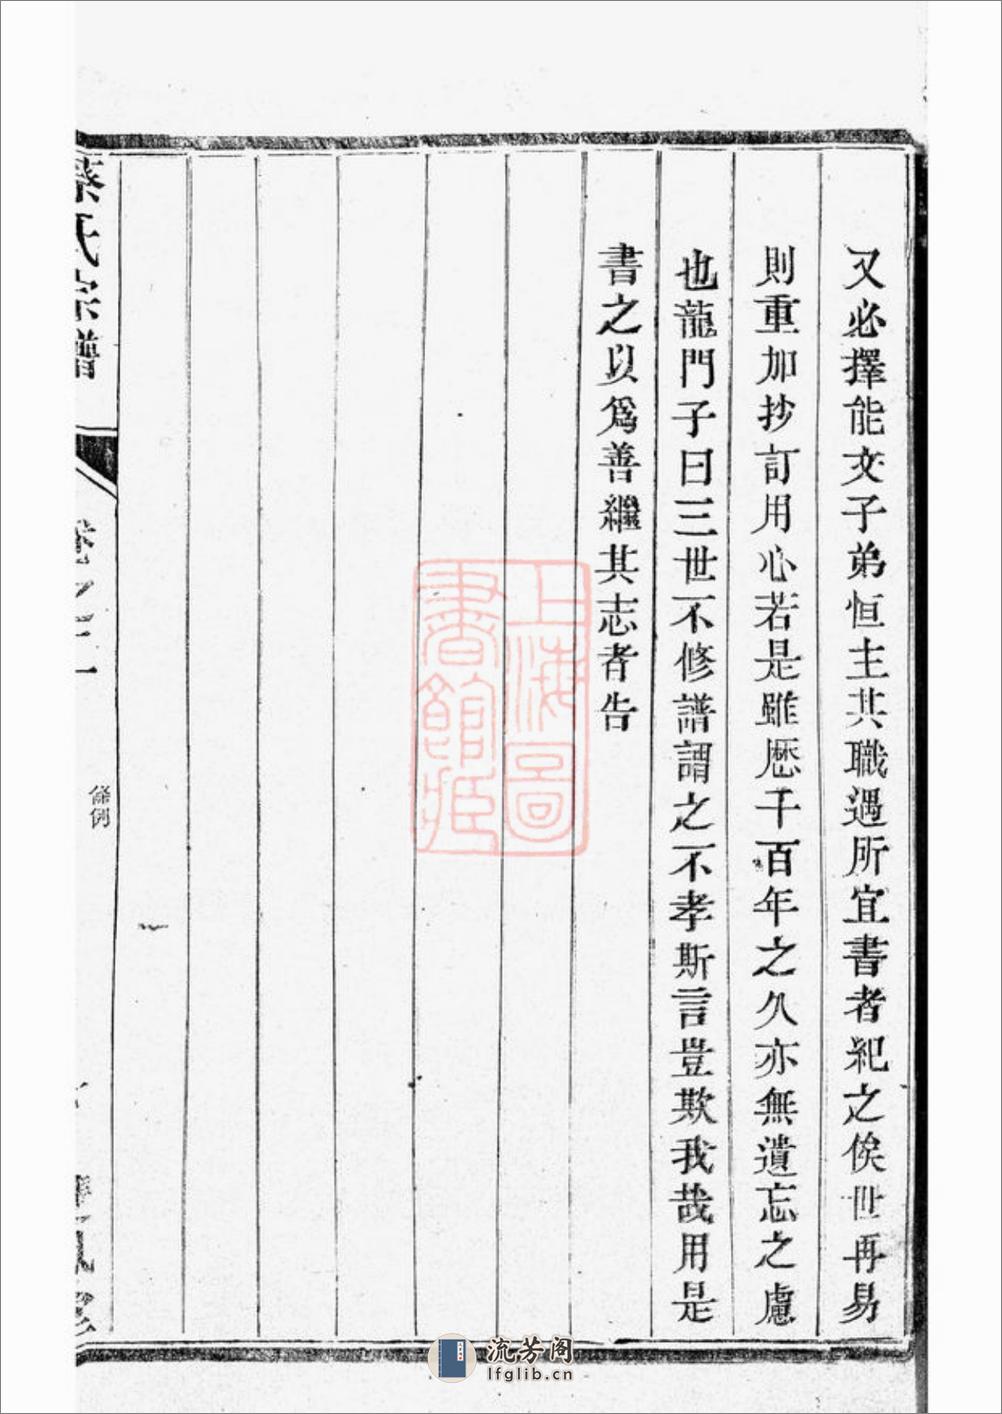 又必擇能文子弟恒主其職遇所宜書者紀之俟世再易
則重加抄訂用心若是雖歷千百年之久亦無遺忘之慮
也龍門子曰三世不修譜謂之不孝斯言豈欺我哉用是
書之以爲善繼其志者告
蔡氏宗譜
卷之二
條例
上海圖
書館藏
流芳阁
lfglib.cn